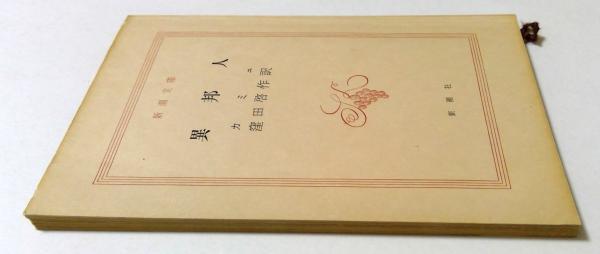 新潮文庫
異邦人
カミユ
窪田啓作訳
新潮社